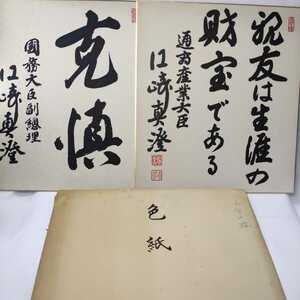 克慎
國務大臣副総理
江﨑真澄
親友は生涯の
財宝である
通商産業大臣
江﨑真澄
色紙